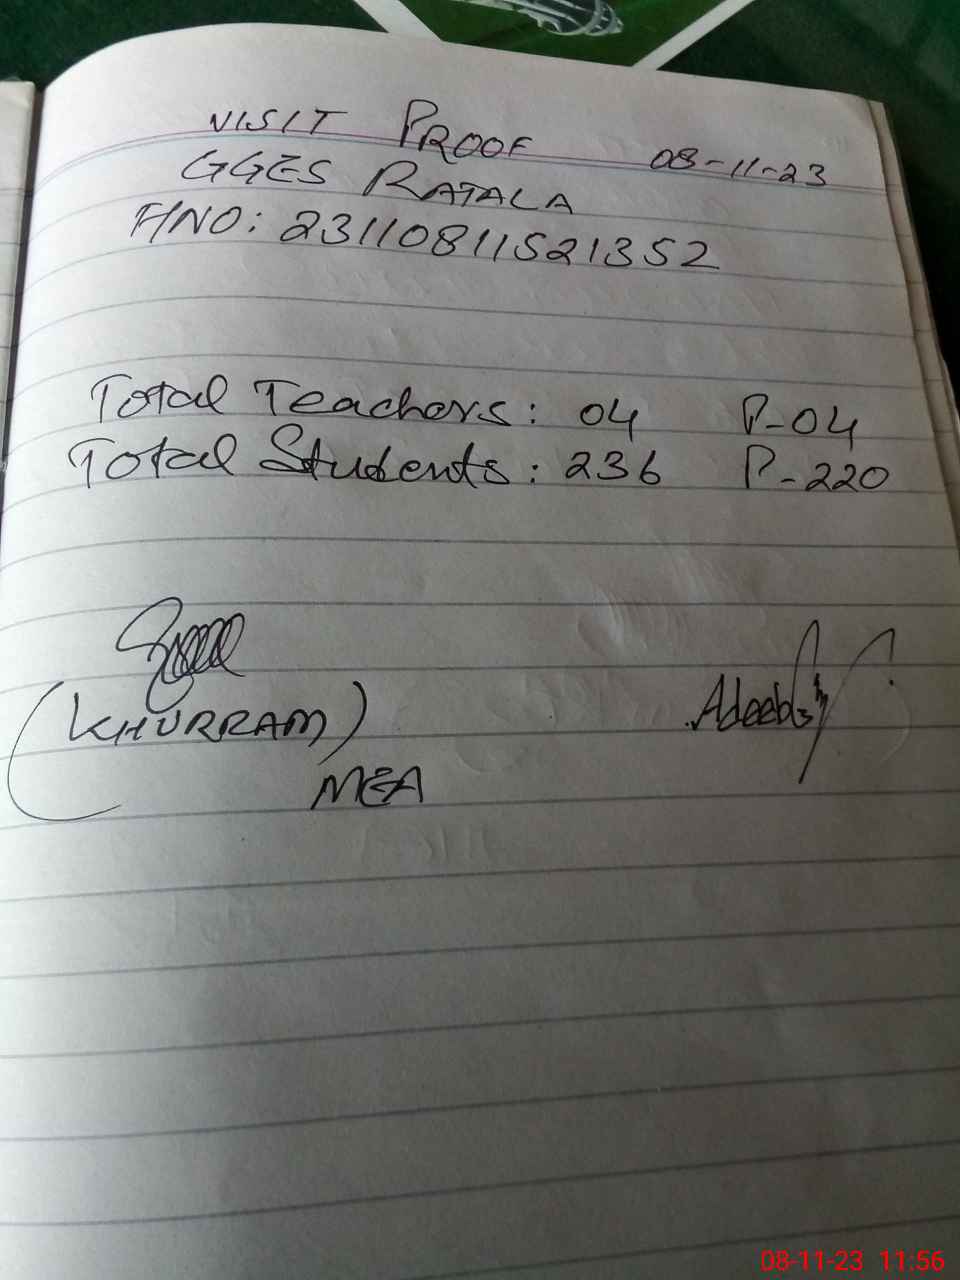 VISIT PROOF 08-11-23
GGES RATALA
FNO: 23110811521352
Total Teachers: 04 P-04
Total Students: 236 P-220
(KHURRAM)
MEA
Adeeb
08-11-23 11:56